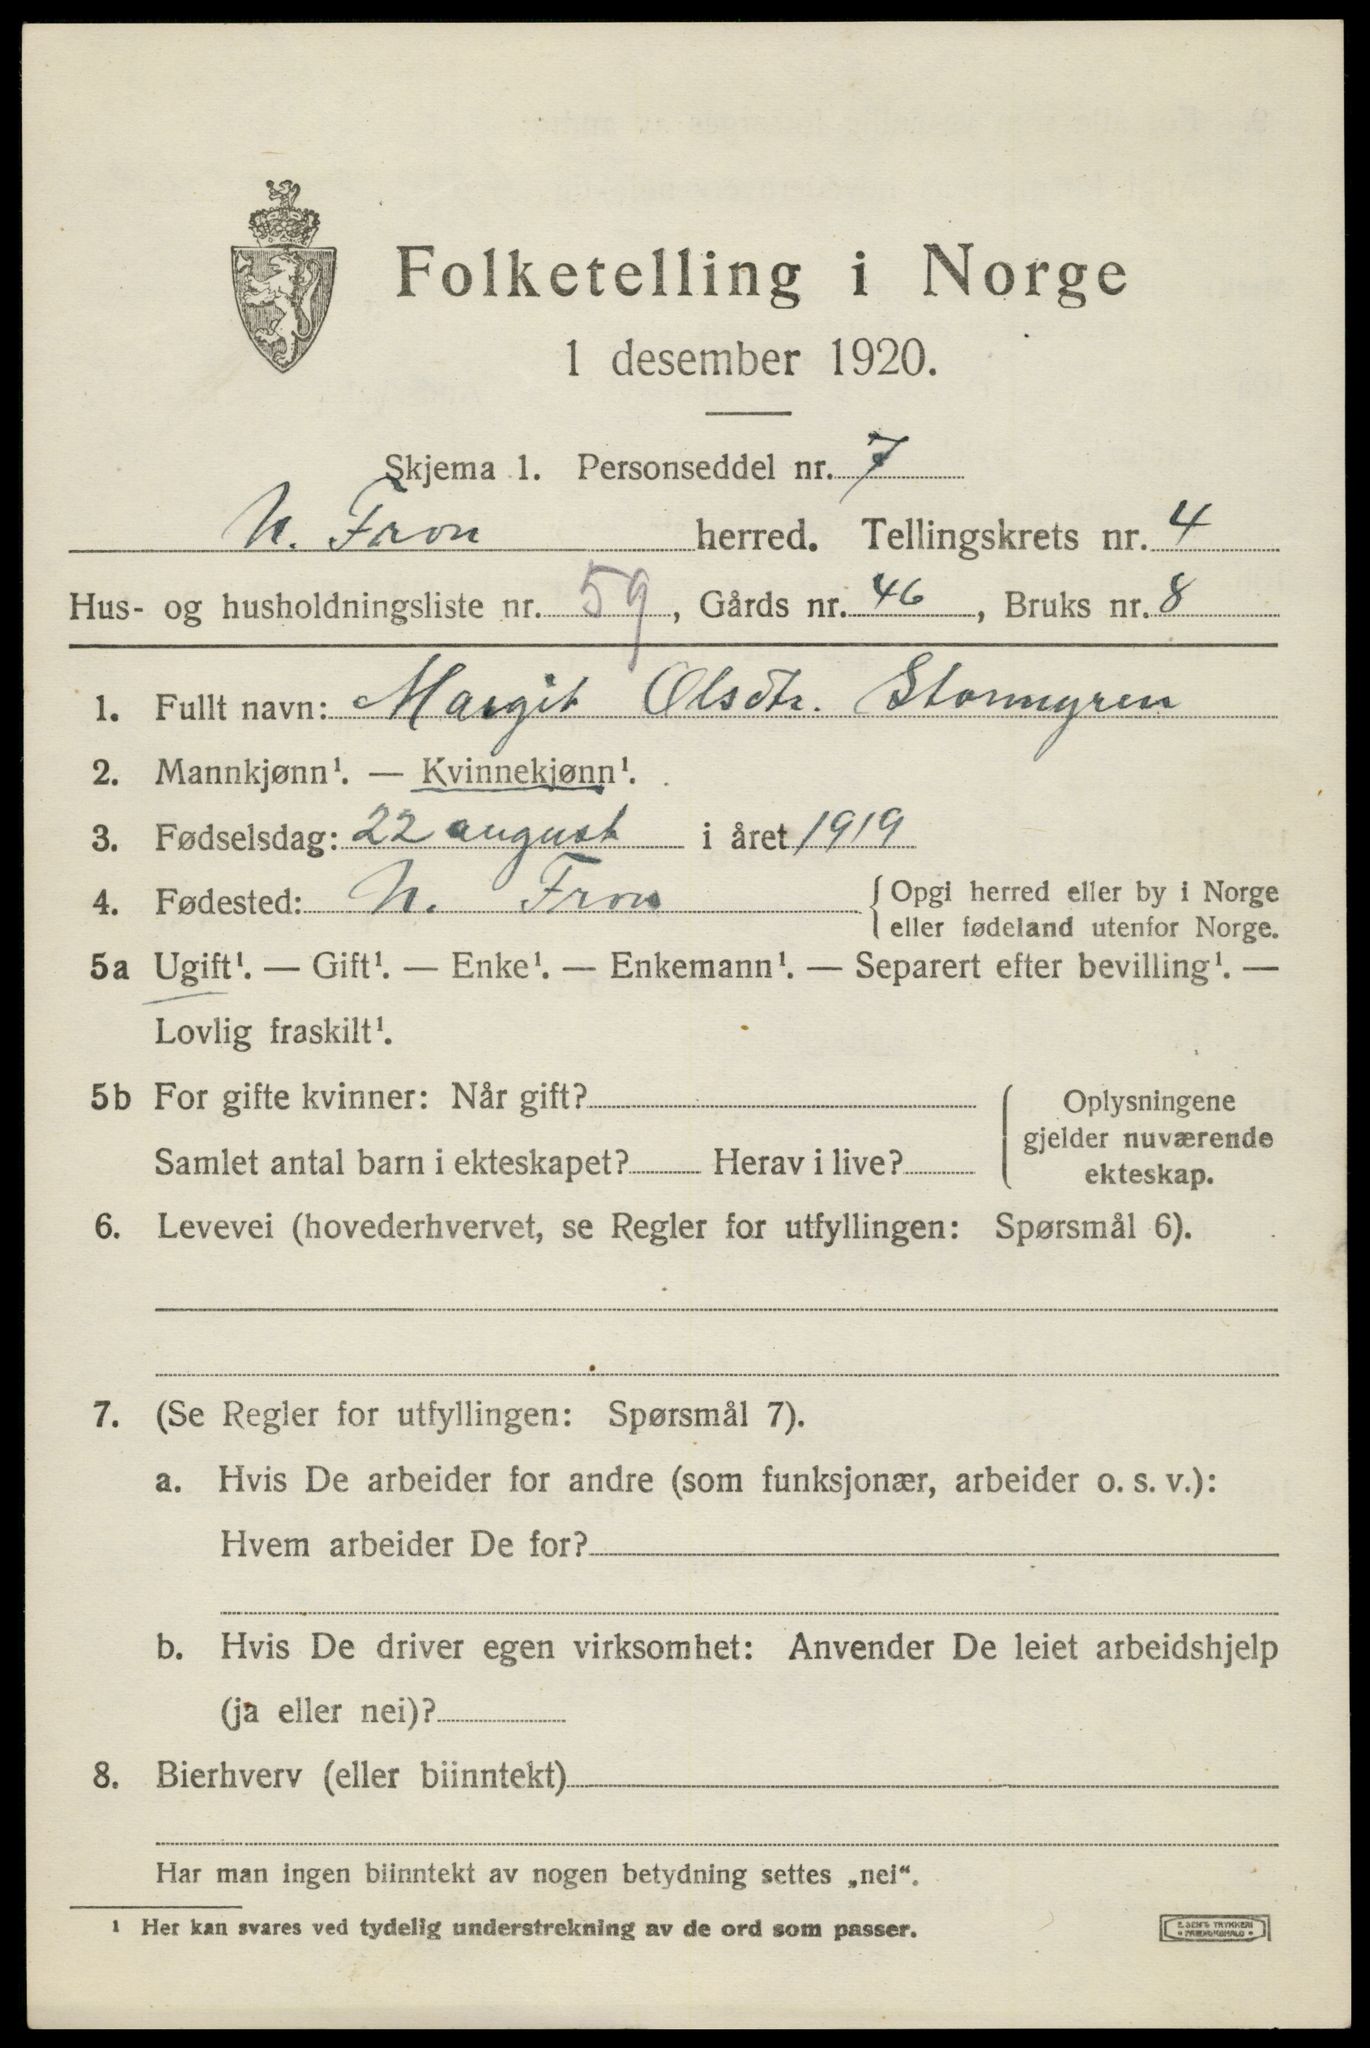 Folketelling i Norge
1 desember 1920.
Skjema 1. Personseddel nr. 7
N. Fron herred. Tellingskrets nr. 4
Hus- og husholdningsliste nr. 59, Gårds nr. 46, Bruks nr. 8
1. Fullt navn: Margit Olsdtr. Stormyren
2. Mannkjønn¹. — Kvinnekjønn¹.
3. Fødselsdag: 22 august i året 1919
4. Fødested: N. Fron { Opgi herred eller by i Norge
eller fødeland utenfor Norge.
5a Ugift¹. — Gift¹. — Enke¹. — Enkemann¹. — Separert efter bevilling¹. —
Lovlig fraskilt¹.
5b For gifte kvinner: Når gift?
Samlet antal barn i ekteskapet? Herav i live?
Oplysningene
gjelder nuværende
ekteskap.
6. Levevei (hovederhvervet, se Regler for utfyllingen: Spørsmål 6).
7. (Se Regler for utfyllingen: Spørsmål 7).
a. Hvis De arbeider for andre (som funksjonær, arbeider o. s. v.):
Hvem arbeider De for?
b. Hvis De driver egen virksomhet: Anvender De leiet arbeidshjelp
(ja eller nei)?
8. Bierhverv (eller biinntekt)
Har man ingen biinntekt av nogen betydning settes „nei“.
¹ Her kan svares ved tydelig understrekning av de ord som passer.